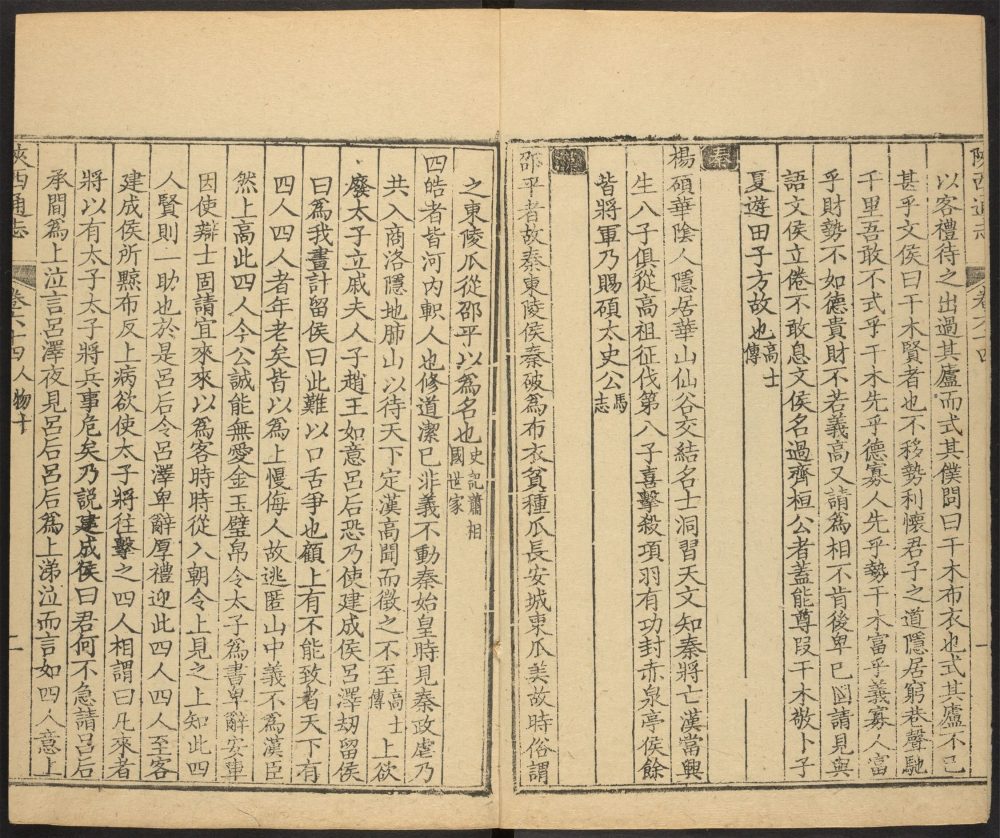 陝西通志 卷六十四 一
以客禮待之出過其廬而式其僕問曰干木布衣也式其廬不已
甚乎文侯曰干木賢者也不移勢利懷君子之道隱居窮巷聲馳
千里吾敢不式乎干木先乎德寡人先乎勢干木富乎義寡人富
乎財勢不如德貴財不若義高又請為相不肯後卑已固請見與
語文侯立倦不敢息文侯名過齊桓公者蓋能尊段干木敬卜子
夏遊田子方故也高士傳
秦
楊碩華陰人隱居華山仙谷交結名士洞習天文知秦將亡漢當興
生八子俱從高祖征伐第八子喜擊殺項羽有功封赤泉亭侯餘
皆將軍乃賜碩太史公馬志
漢
邵平者故秦東陵侯秦破為布衣貧種瓜長安城東瓜美故時俗謂
之東陵瓜從邵平以為名也史記蕭相國世家
四皓者皆河內軹人也修道潔已非義不動秦始皇時見秦政虐乃
共入商洛隱地肺山以待天下定漢高聞而徵之不至高士傳上欲
廢太子立戚夫人子趙王如意呂后恐乃使建成侯呂澤劫留侯
曰為我畫計留侯曰此難以口舌爭也顧上有不能致者天下有
四人四人者年老矣皆以為上慢侮人故逃匿山中義不為漢臣
然上高此四人今公誠能無愛金玉璧帛令太子為書卑辭安車
因使辯士固請宜來來以為客時時從入朝令上見之上知此四
人賢則一助也於是呂后令呂澤卑辭厚禮迎此四人四人至客
建成侯所黥布反上病欲使太子將往擊之四人相謂曰凡來者
將以有太子太子將兵事危矣乃說建成侯曰君何不急請呂后
承間為上泣言呂澤夜見呂后呂后為上涕泣而言如四人意上
陝西通志 卷六十四人物十 二